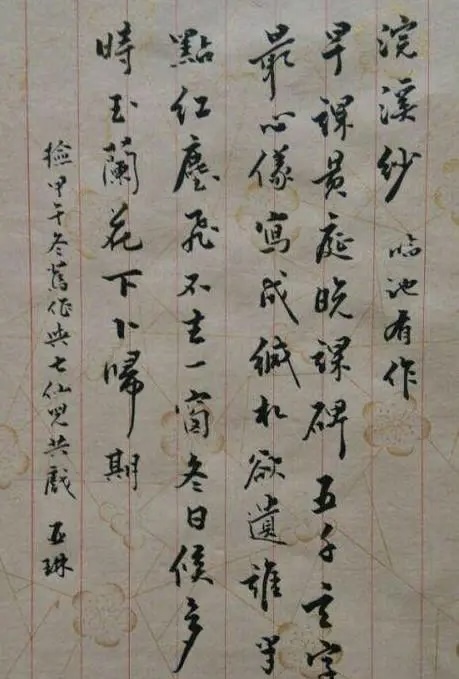 浣溪紗 臨池有作
早課黃庭晚課碑五千言字
最心儀寫成緘札欲遺誰半
點紅塵飛不去一窗冬日候多
時玉蘭花下卜歸期
檢甲午冬舊作與七仙兒共戲 琳